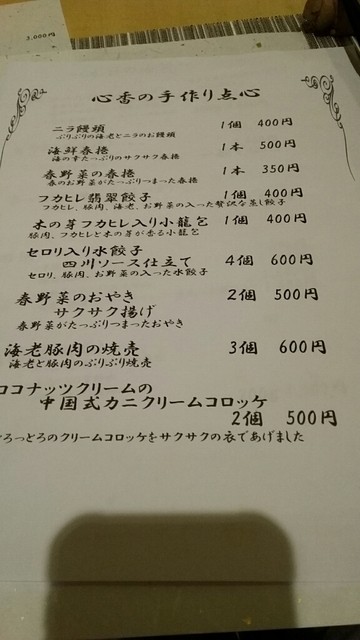 3,000円
心香の手作り点心
ニラ饅頭 1個 400円
ぷりぷりの海老とニラのお饅頭
海鮮春捲 1本 500円
海の幸たっぷりのサクサク春捲
春野菜の春捲 1本 350円
春のお野菜がたっぷりつまった春捲
フカヒレ翡翠餃子 1個 400円
フカヒレ、豚肉、海老、お野菜の入った贅沢な蒸し餃子
木の芽フカヒレ入り小籠包 1個 400円
豚肉、フカヒレと木の芽が香る小籠包
セロリ入り水餃子
四川ソース仕立て 4個 600円
セロリ、豚肉、お野菜の入った水餃子
春野菜のおやき 2個 500円
サクサク揚げ
春野菜がたっぷりつまったおやき
海老豚肉の焼売 3個 600円
海老と豚肉のぷりぷり焼売
ココナッツクリームの
中国式カニクリームコロッケ
2個 500円
ろっとろのクリームコロッケをサクサクの衣であげました